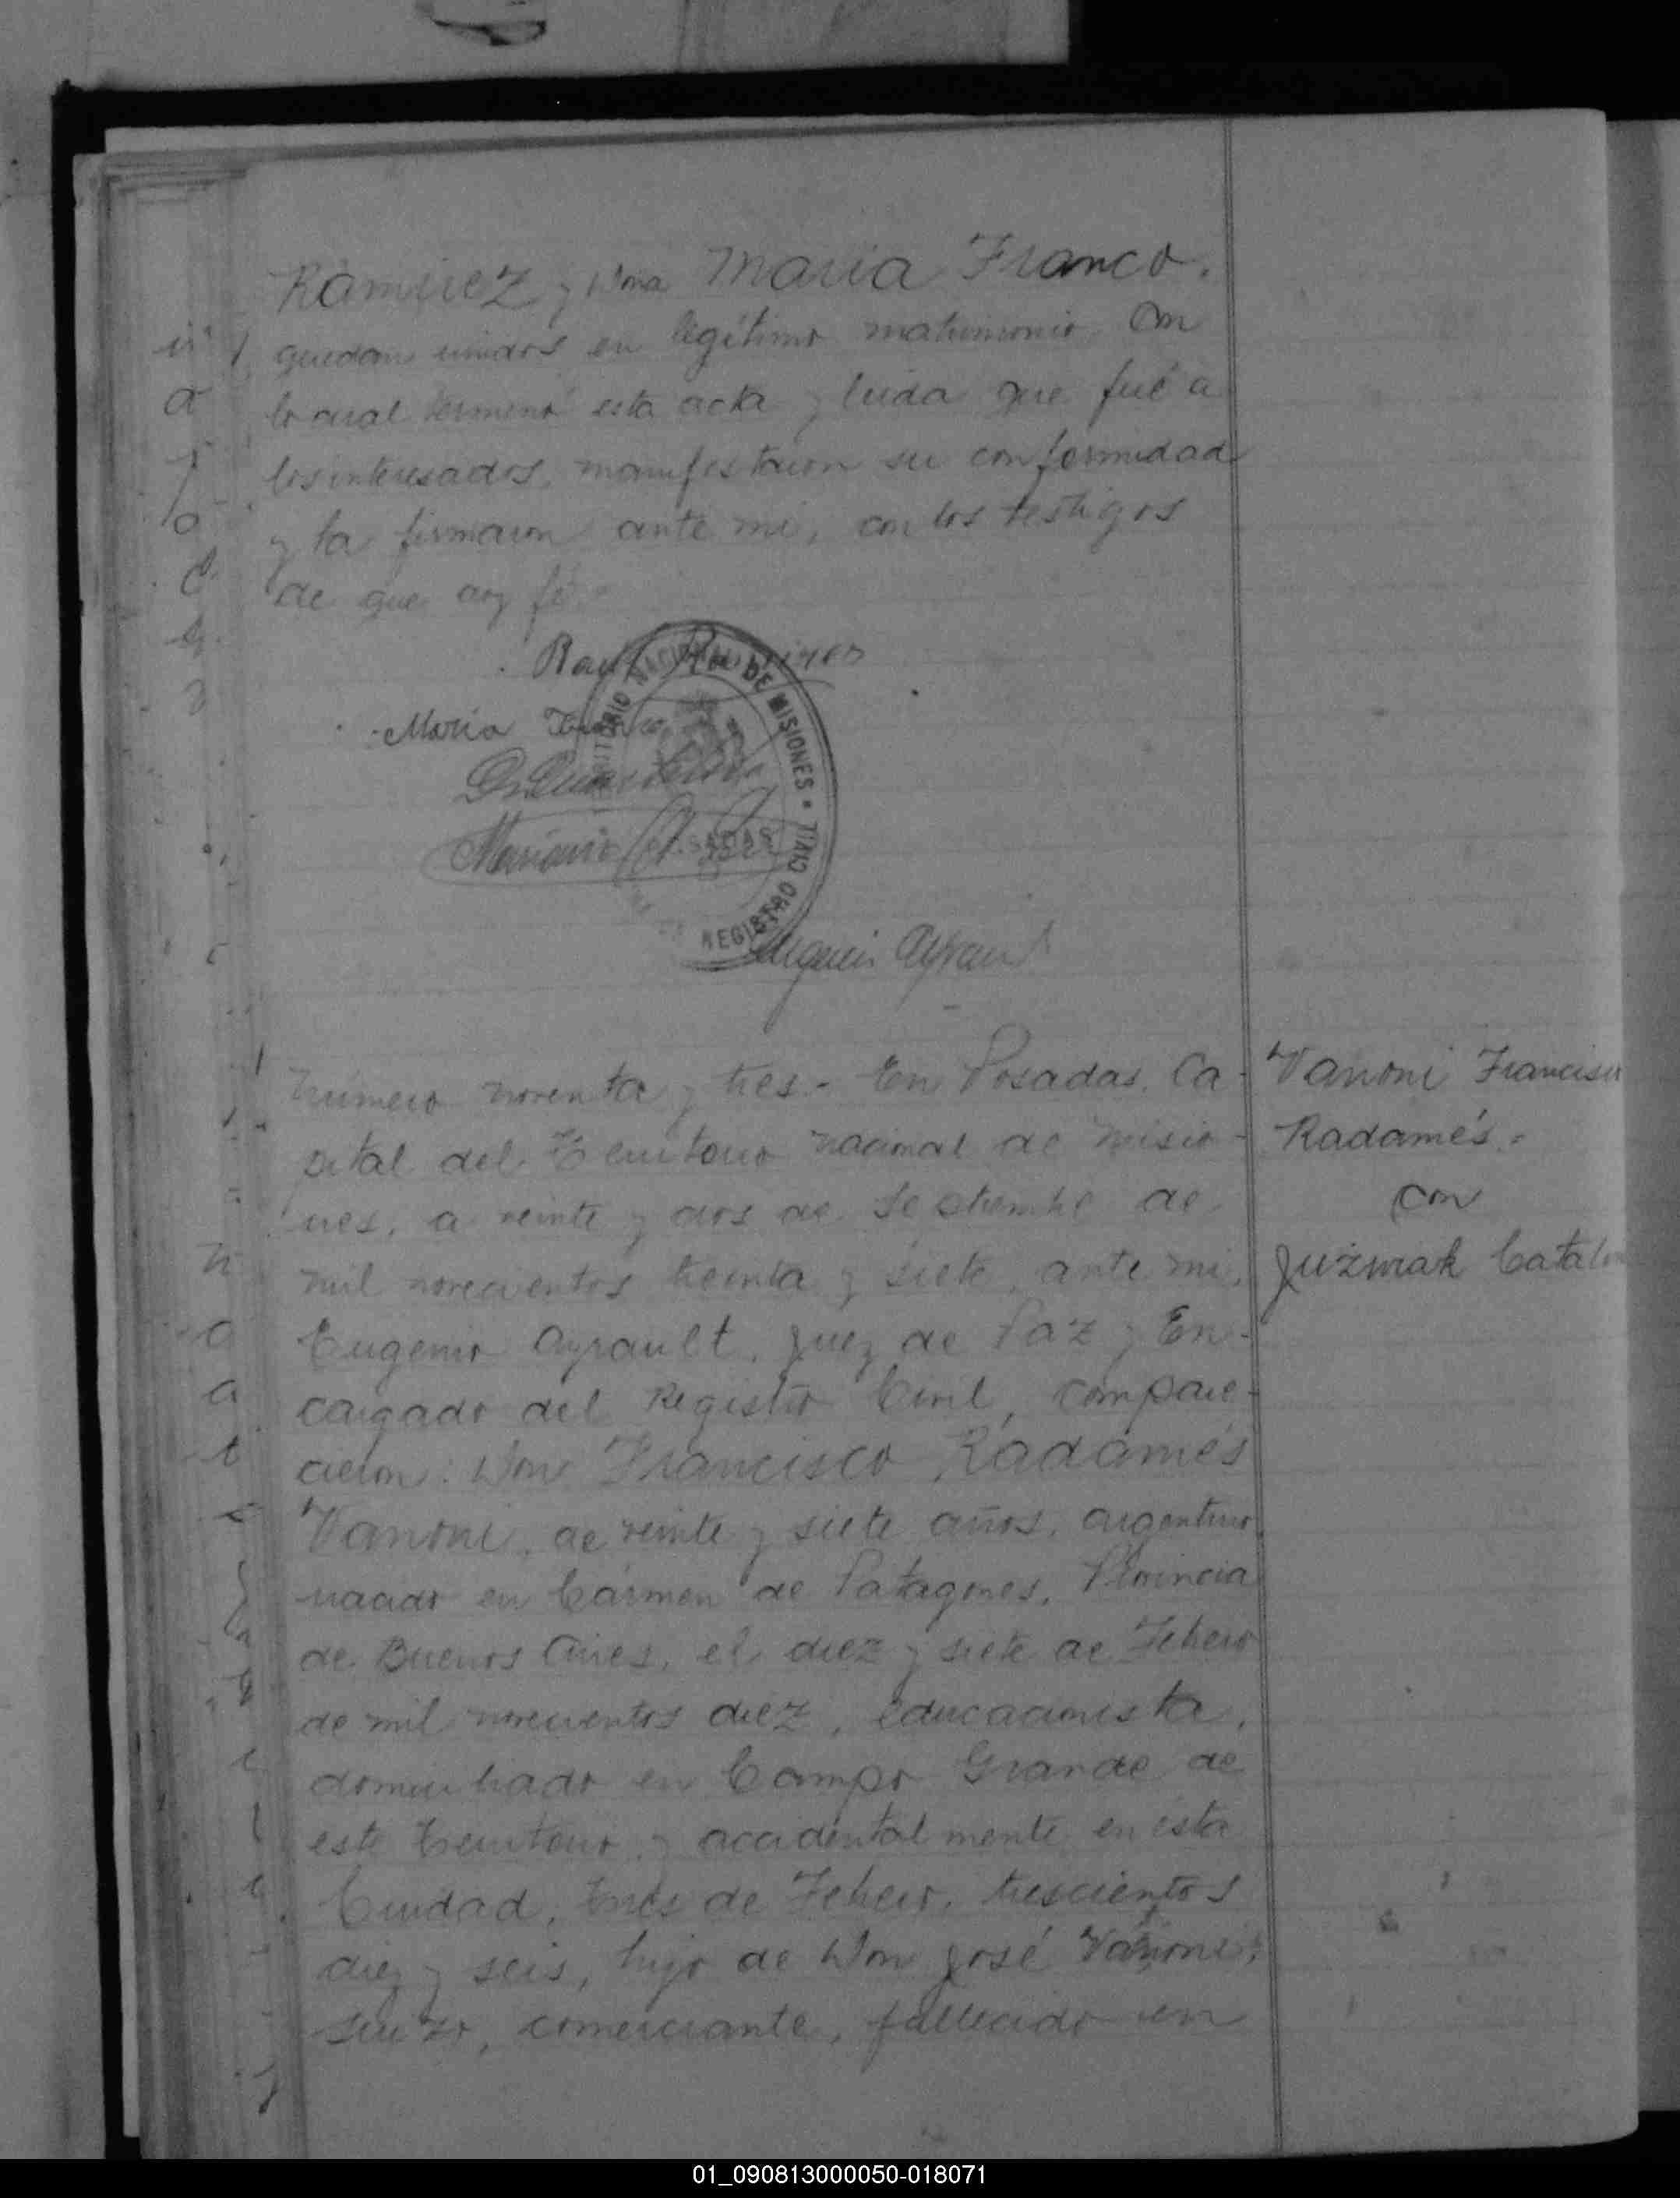 Ramirez y Dona Maria Franco.
quedan unidos en legítimo matrimonio. Con
lo cual terminó esta acta y leida que fué a
los interesados, manifestaron su conformidad
y la firmaron ante mi, con los testigos
de que doy fé.
Raul Ramirez
Maria Franco
TERRITORIO NACIONAL DE MISIONES • REGISTRO CIVIL
POSADAS
Mariano
Eugenio Ayrault
Número noventa y tres.- En Posadas, Ca-
pital del Territorio nacional de Misio-
nes, a veinte y dos de Septiembre de
mil novecientos treinta y siete, ante mi,
Eugenio Ayrault, Juez de Paz y En-
cargado del Registro Civil, compare-
cieron: Don Francisco Radamés
Vanoni, de veinte y siete años, argentino
nacido en Cármen de Patagones, Provincia
de Buenos Aires, el diez y siete de Febrero
de mil novecientos diez, educacionista,
domiciliado en Campo Grande de
este Territorio y accidentalmente en esta
Ciudad, tres de Febrero, trescientos
diez y seis, hijo de Don José Vanoni,
suizo, comerciante, fallecido en
Vanoni Francisco
Radamés.-
con
Juzwiak Catalina
01_090813000050-018071